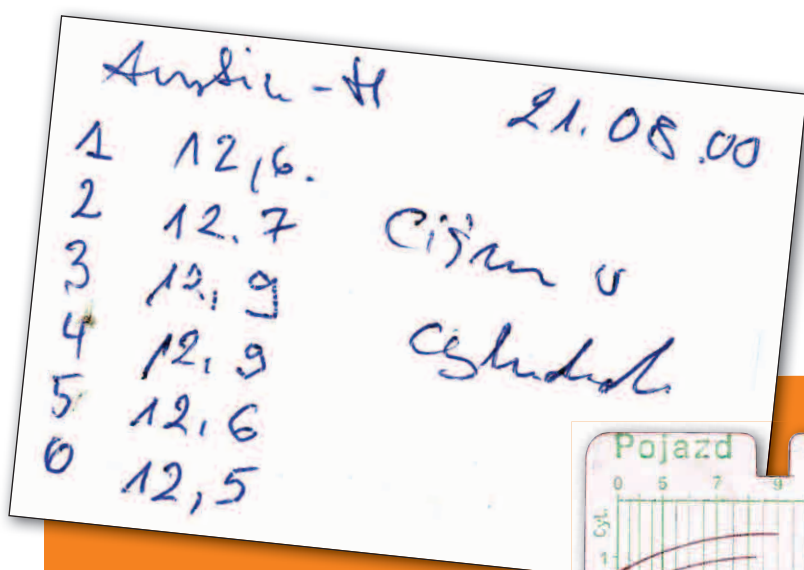 Austin-H 21.08.00
1 12,6.
2 12.7
3 12,9
4 12,9
5 12,6
6 12,5
Ciśn w
Cylindrach
Pojazd
0 5 7 9
Cyl.
1